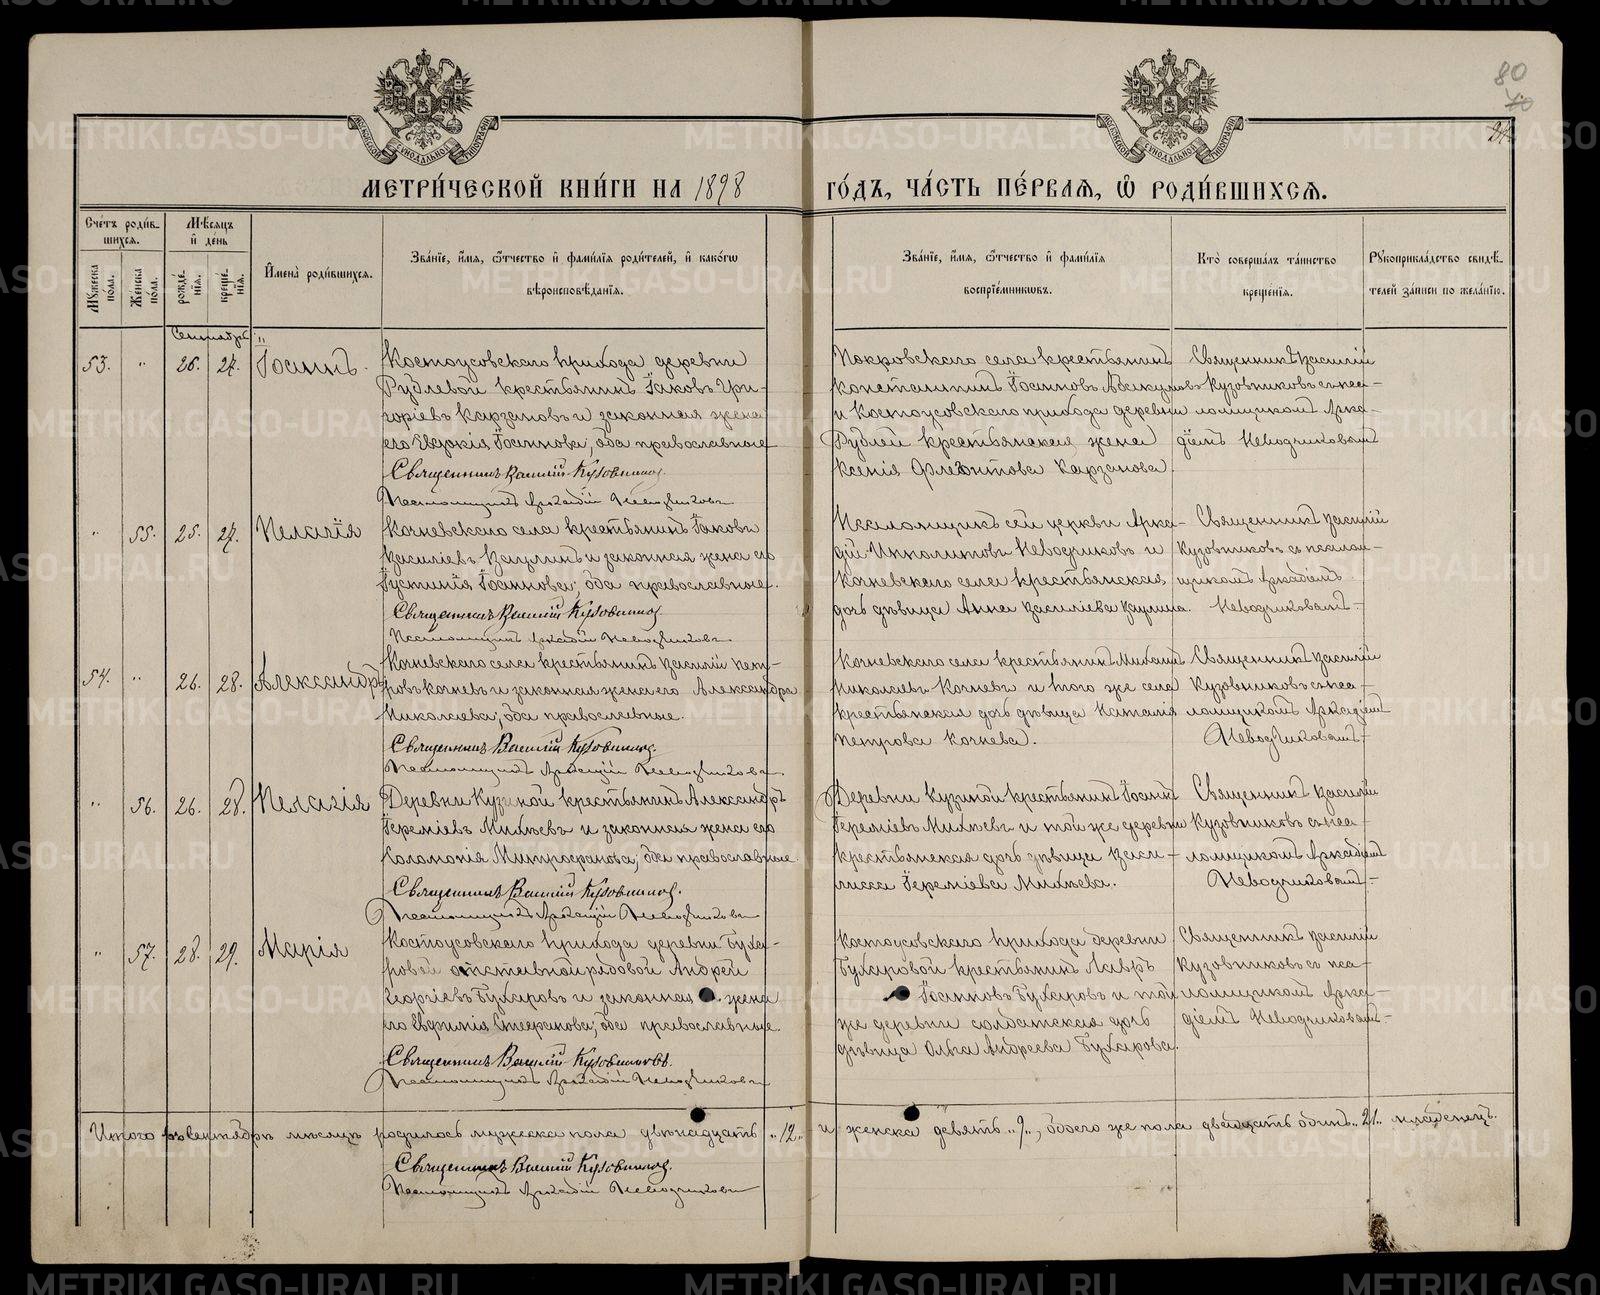 80
70
МЕТРИ́ЧЕСКОЙ КНИ́ГИ НА 1898 ГО́ДЪ, ЧА́СТЬ ПЕ́РВАЯ, Ѡ РОДИ́ВШИХСЯ.
Сче́тъ роди́в-
шихся.
Мѣ́сяцъ
и де́нь
Мꙋ́жеска по́ла.
Же́нска по́ла.
рожде́нїя.
креще́нїя.
И́мена роди́вшихся.
Зва́нїе, и́мя, ѻ҆́тчество и фами́лїя роди́телей, и како́гѡ
вѣроисповѣ́данїя.
Зва́нїе, и́мя, ѻ҆́тчество и фами́лїя
воспрїе́мникѡвъ.
Кто̀ соверша́лъ та́инство
креще́нїя.
Рꙋкоприкла́дство свидѣ́-
телей за́писи по жела́нїю.
Сентябрь
53. " 26. 27. Іоаннъ.
Костоусовскаго прихода деревни
Рудлевой крестьянинъ Іаковъ Гри-
горіевъ Карзановъ и законная жена
его Евдокія Іоаннова, оба православные
Священникъ Василій Кузовниковъ
Псаломщикъ Аркадій Неводчиковъ
Покровскаго села крестьянинъ
Константинъ Іоанновъ
и Костоусовскаго прихода деревни
крестьянская жена
Ксенія Флегонтова Карзанова.
Священникъ Василій
Кузовниковъ съ пса-
ломщикомъ Арка-
діемъ Неводчиковымъ
" 55. 25. 27. Пелагія
Кочневскаго села крестьянинъ Іаковъ
Василіевъ Ваулинъ и законная жена его
Іустинія Іоаннова, оба православные.
Священникъ Василій Кузовниковъ
Псаломщикъ Аркадій Неводчиковъ
Псаломщикъ сей церкви Арка-
дій Ипполитовъ Неводчиковъ и
Кочневскаго села крестьянская
дочь дѣвица Анна Василіева Ваулина.
Священникъ Василій
Кузовниковъ съ псалом-
щикомъ Аркадіемъ
Неводчиковымъ
54. " 26. 28. Александръ
Кочневскаго села крестьянинъ Василій Пет-
ровъ Кочневъ и законная жена его Александра
Николаева, оба православные.
Священникъ Василій Кузовниковъ.
Псаломщикъ Аркадій Неводчиковъ
Кочневскаго села крестьянинъ Михаилъ
Николаевъ Кочневъ и того же села
крестьянская дочь дѣвица Наталія
Петрова Кочнева.
Священникъ Василій
Кузовниковъ съ пса-
ломщикомъ Аркадіемъ
Неводчиковымъ
" 56. 26. 28. Пелагія
Деревни Кузиной крестьянинъ Александръ
Іереміевъ Михѣевъ и законная жена его
Соломонія Митрофанова, оба православные.
Священникъ Василій Кузовниковъ.
Псаломщикъ Аркадій Неводчиковъ
Деревни Кузиной крестьянинъ Іоаннъ
Іереміевъ Михѣевъ и той же деревни
крестьянская дочь дѣвица Васи-
лисса Іереміева Михѣева.
Священникъ Василій
Кузовниковъ съ пса-
ломщикомъ Аркадіемъ
Неводчиковымъ
" 57. 28. 29. Марія
Костоусовскаго прихода деревни Буха-
ровой отставной рядовой Андрей
Георгіевъ Бухаровъ и законная жена
его Евфимія Стефанова, оба православные.
Священникъ Василій Кузовниковъ.
Псаломщикъ Аркадій Неводчиковъ
Костоусовскаго прихода деревни
Бухаровой крестьянинъ Лавръ
Іоанновъ Бухаровъ и той
же деревни солдатская дочь
дѣвица Ольга Андреева Бухарова.
Священникъ Василій
Кузовниковъ съ пса-
ломщикомъ Арка-
діемъ Неводчиковымъ
Итого въ Сентябрѣ мѣсяцѣ родилось мужеска пола двѣнадцать "12" и женска девять "9", обоего же пола двадцать одинъ "21" младенецъ.
Священникъ Василій Кузовниковъ.
Псаломщикъ Аркадій Неводчиковъ
METRIKI.GASO-URAL.RU